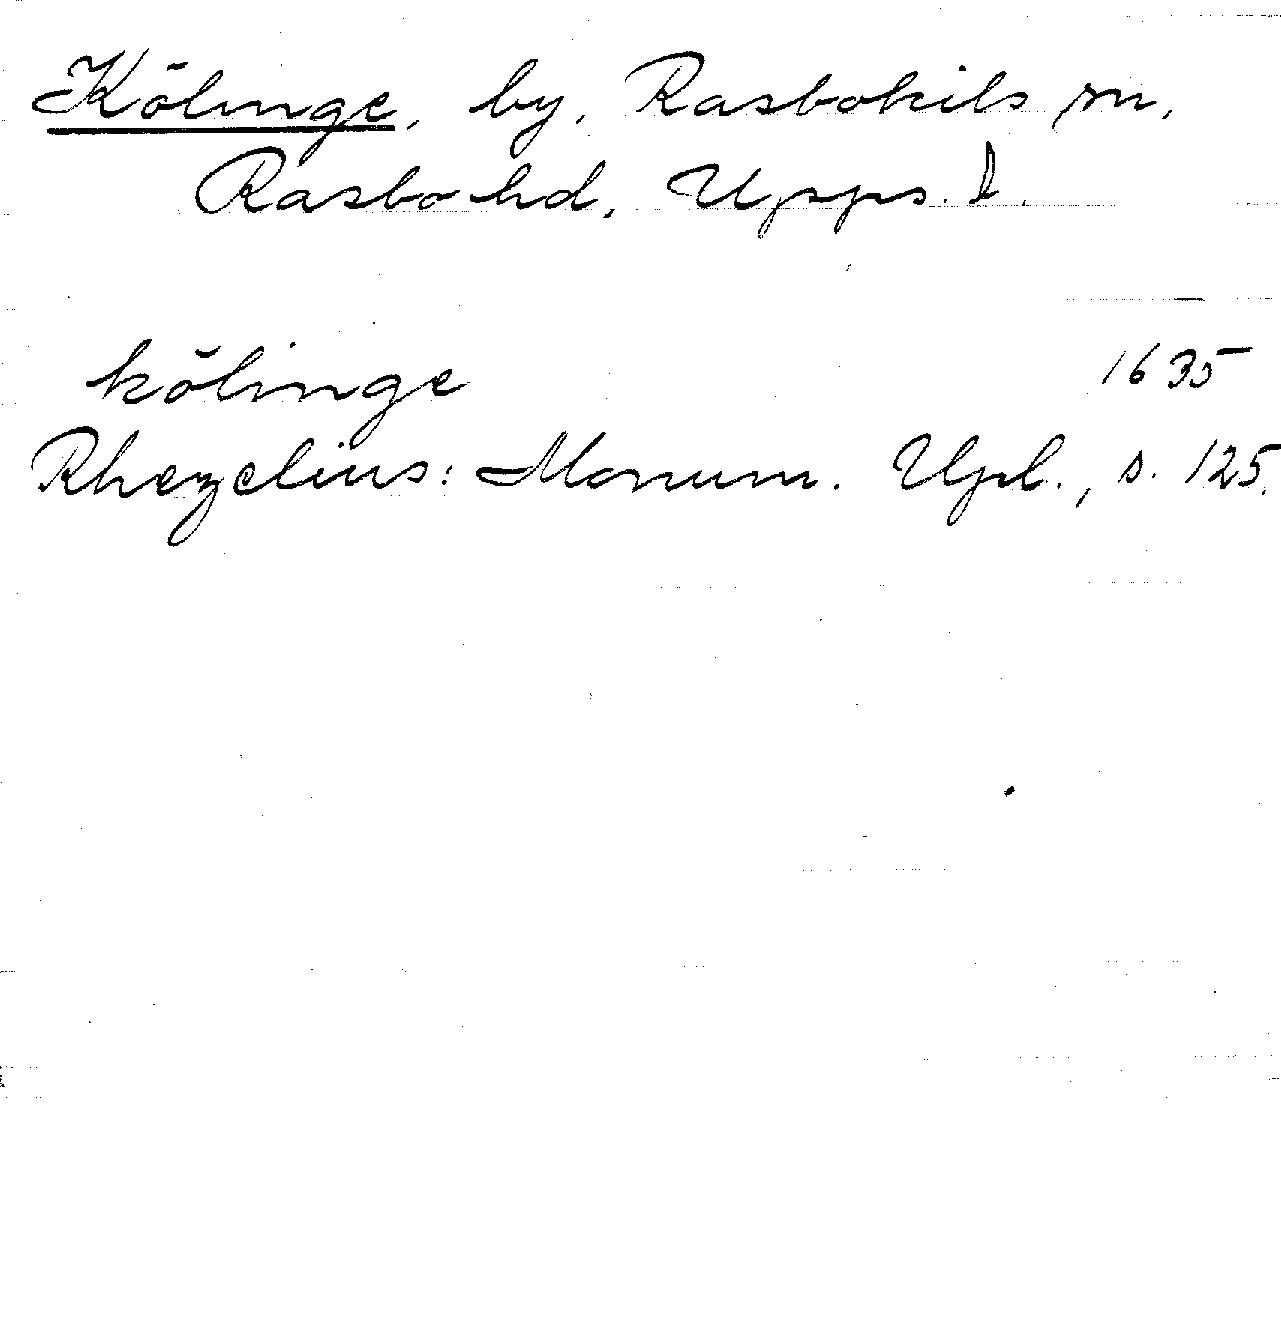 Kölinge, by, Rasbokils sn,
Rasbo hd, Upps. l.
kölinge 1635
Rhezelius: Monum. Upl., s. 125.